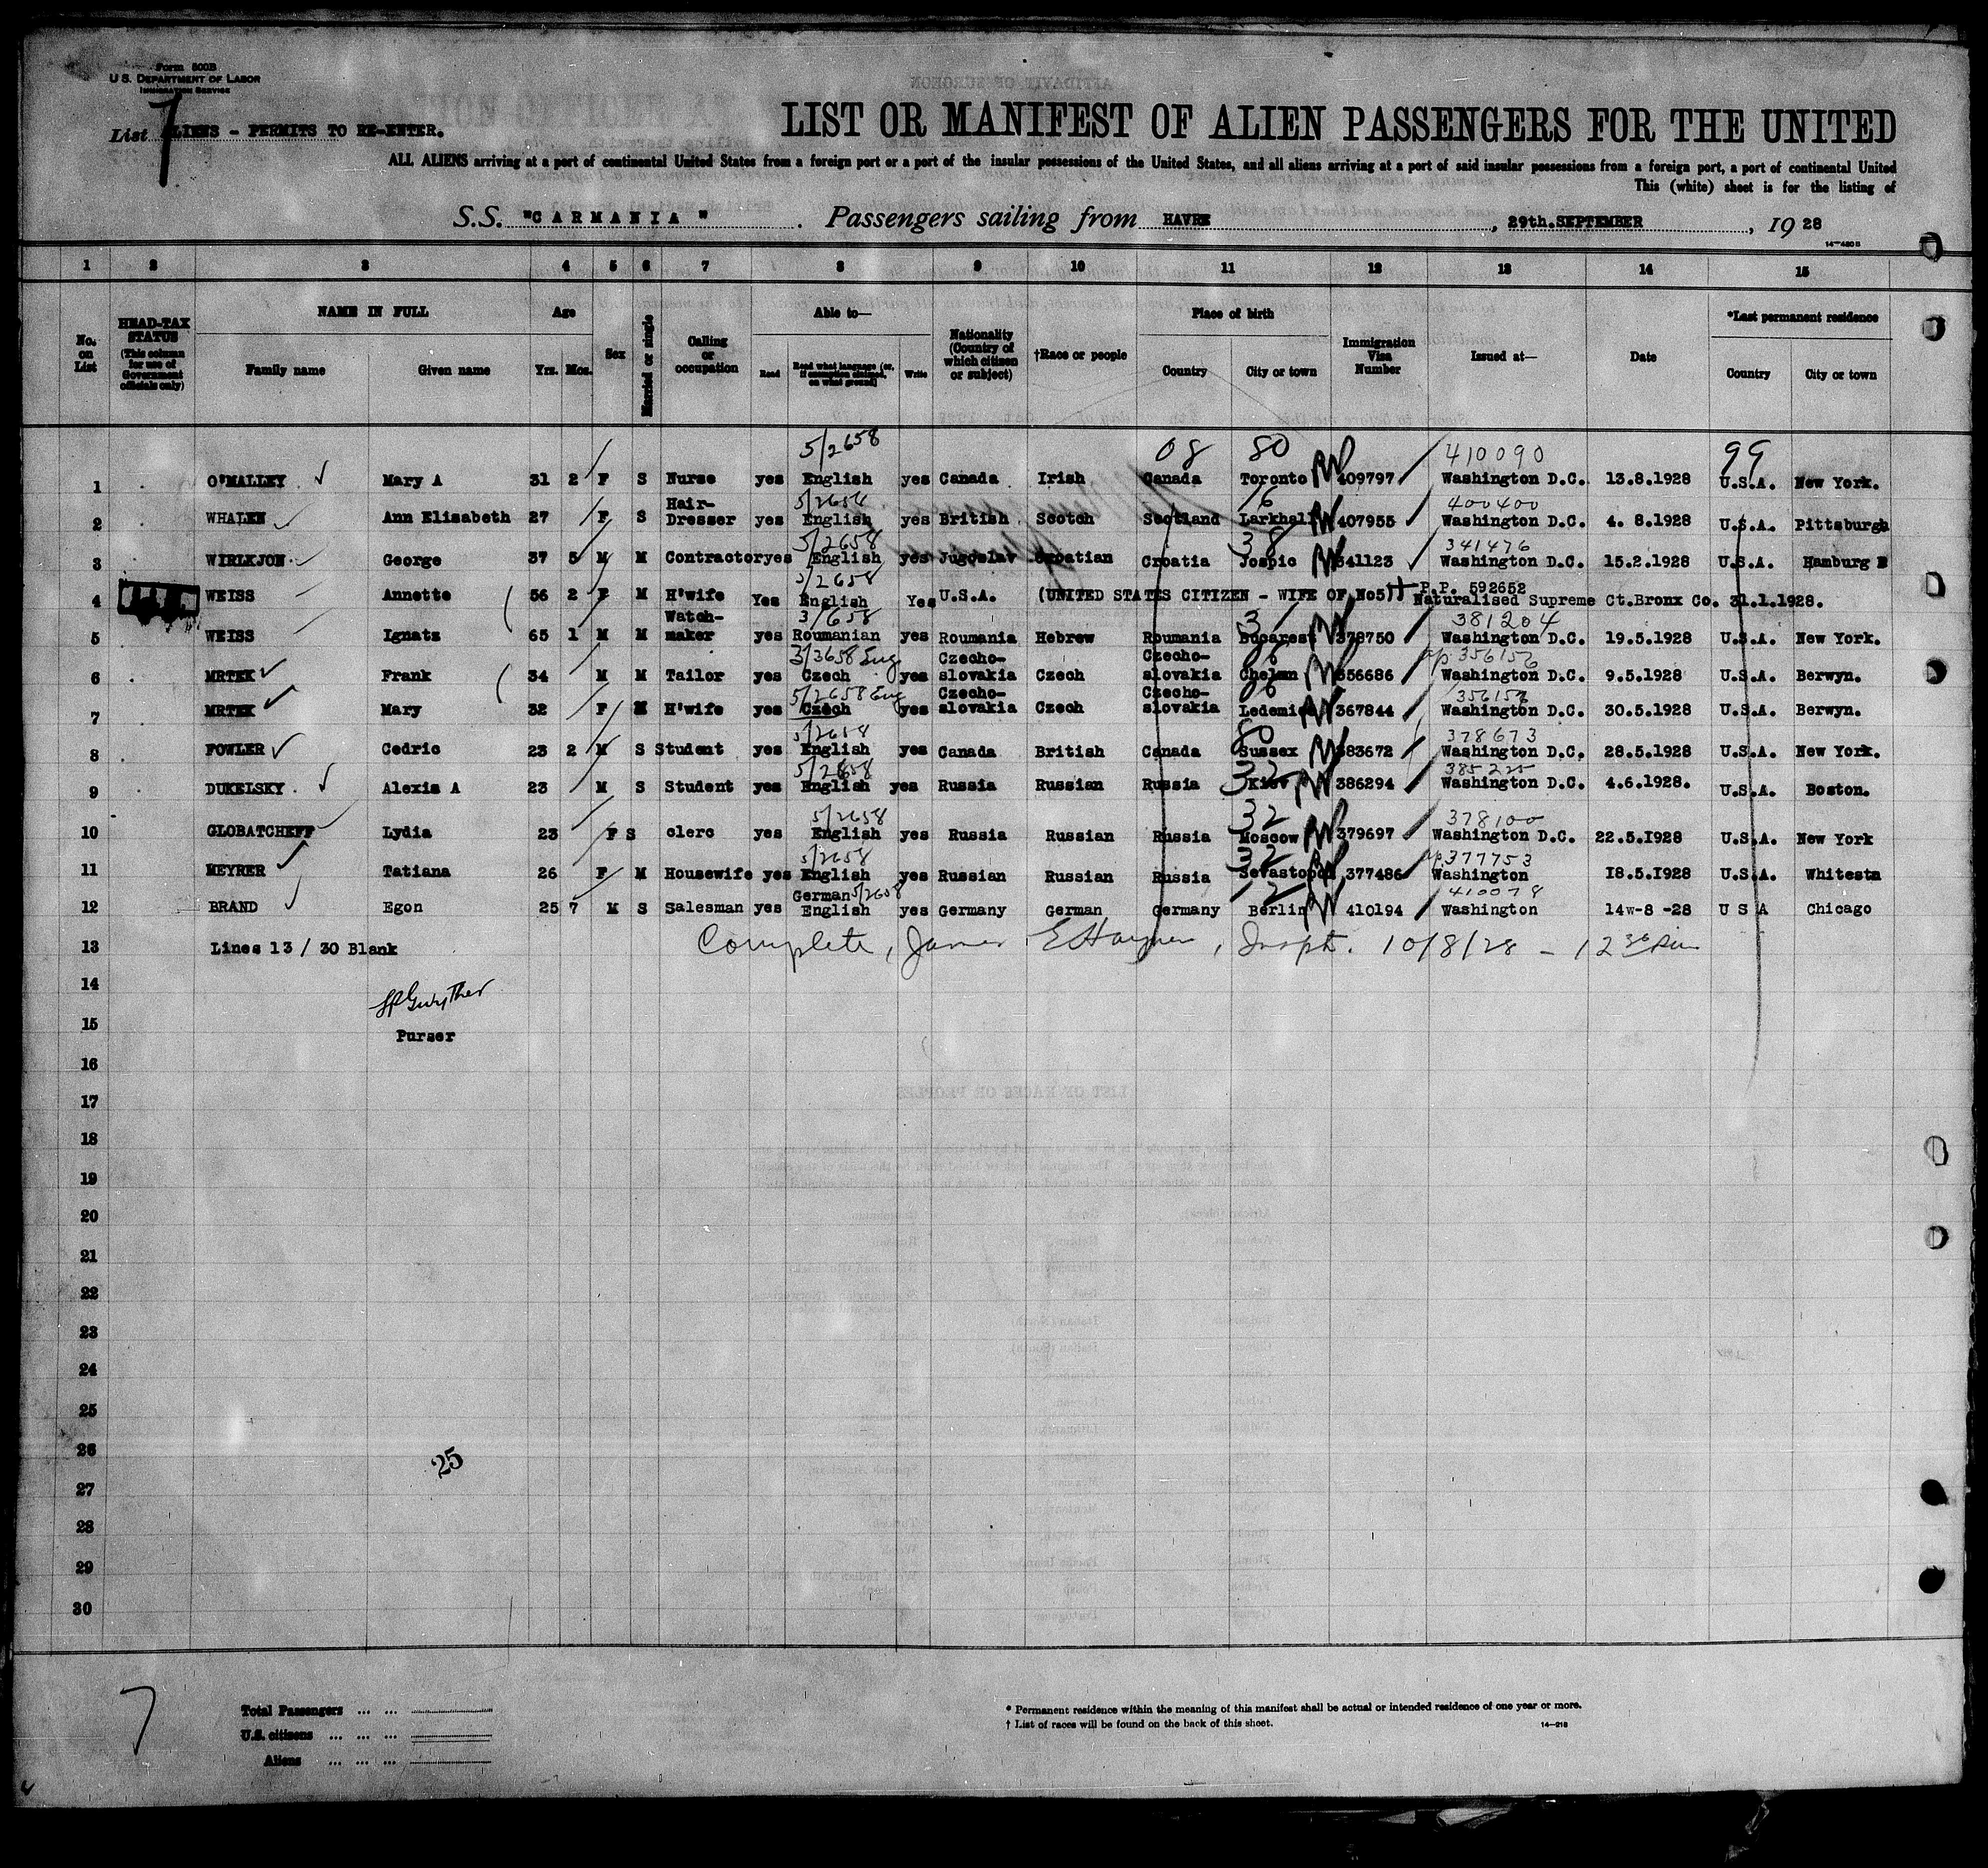 Form 500B
U.S. DEPARTMENT OF LABOR
IMMIGRATION SERVICE
List 7 ALIENS - PERMITS TO RE-ENTER.
LIST OR MANIFEST OF ALIEN PASSENGERS FOR THE UNITED
ALL ALIENS arriving at a port of continental United States from a foreign port or a port of the insular possessions of the United States, and all aliens arriving at a port of said insular possessions from a foreign port, a port of continental United
This (white) sheet is for the listing of
S.S. "CARMANIA". Passengers sailing from HAVRE, 29th.SEPTEMBER, 19 28
14-480 B
1 2 3 4 5 6 7 8 9 10 11 12 13 14 15
No. on List
HEAD-TAX STATUS (This column for use of Government officials only)
NAME IN FULL Family name Given name
Age Yrs. Mos.
Sex
Married or single
Calling or occupation
Able to— Read Read what language (or, if exemption claimed, on what ground) Write
Nationality (Country of which citizen or subject)
†Race or people
Place of birth Country City or town
Immigration Visa Number
Issued at—
Date
*Last permanent residence Country City or town
5/2658 08 80 410090 99
1 O'MALLEY Mary A 31 2 F S Nurse yes English yes Canada Irish Canada Toronto 409797 Washington D.C. 13.8.1928 U.S.A. New York.
16 400400
2 WHALEN Ann Elizabeth 27 F S Hair-Dresser yes English yes British Scotch Scotland Larkhall 407955 Washington D.C. 4. 8.1928 U.S.A. Pittsburgh
5/2658 38 341476
3 WIRLKJON George 37 5 M M Contractor yes English yes Jugoslav Croatian Croatia Jospic 341123 Washington D.C. 15.2.1928 U.S.A. Hamburg
5/2658
4 WEISS Annette 56 2 F M H'wife Yes English Yes U.S.A. (UNITED STATES CITIZEN - WIFE OF No5) P.P. 592652 Naturalised Supreme Ct.Bronx Co. 31.1.1928.
3/658 381204
5 WEISS Ignatz 65 1 M M Watch-maker yes Roumanian yes Roumania Hebrew Roumania Bucarest 378750 Washington D.C. 19.5.1928 U.S.A. New York.
3/3658 Eng 356156
6 MRTEK Frank 34 M M Tailor yes Czech yes Czecho-slovakia Czech Czecho-slovakia 356686 Washington D.C. 9.5.1928 U.S.A. Berwyn.
5/2658 Eng
7 MRTEK Mary 32 F M H'wife yes Czech yes Czecho-slovakia Czech Czecho-slovakia 367844 Washington D.C. 30.5.1928 U.S.A. Berwyn.
80 378673
8 FOWLER Cedric 23 2 M S Student yes English yes Canada British Canada Sussex 383672 Washington D.C. 28.5.1928 U.S.A. New York.
5/2658 32
9 DUKELSKY Alexis A 23 M S Student yes English yes Russia Russian Russia Kiev 386294 Washington D.C. 4.6.1928. U.S.A. Boston.
5/2658 32 378100
10 GLOBATCHEFF Lydia 23 F S clerc yes English yes Russia Russian Russia Moscow 379697 Washington D.C. 22.5.1928 U.S.A. New York
5/2658 32 377753
11 MEYRER Tatiana 26 F M Housewife yes English yes Russian Russian Russia Sevastopol 377486 Washington 18.5.1928 U.S.A. Whitestn
5/2658 12 410078
12 BRAND Egon 25 7 M S Salesman yes German English yes Germany German Germany Berlin 410194 Washington 14w-8 -28 U S A Chicago
13 Lines 13 / 30 Blank Complete, James E , Inspt. 10/8/28 - 12
14
Gwyther
15
Purser
16
17
18
19
20
21
22
23
24
25
26
25
27
28
29
30
7
Total Passengers
U.S. citizens
Aliens
* Permanent residence within the meaning of this manifest shall be actual or intended residence of one year or more.
† List of races will be found on the back of this sheet.
14-218